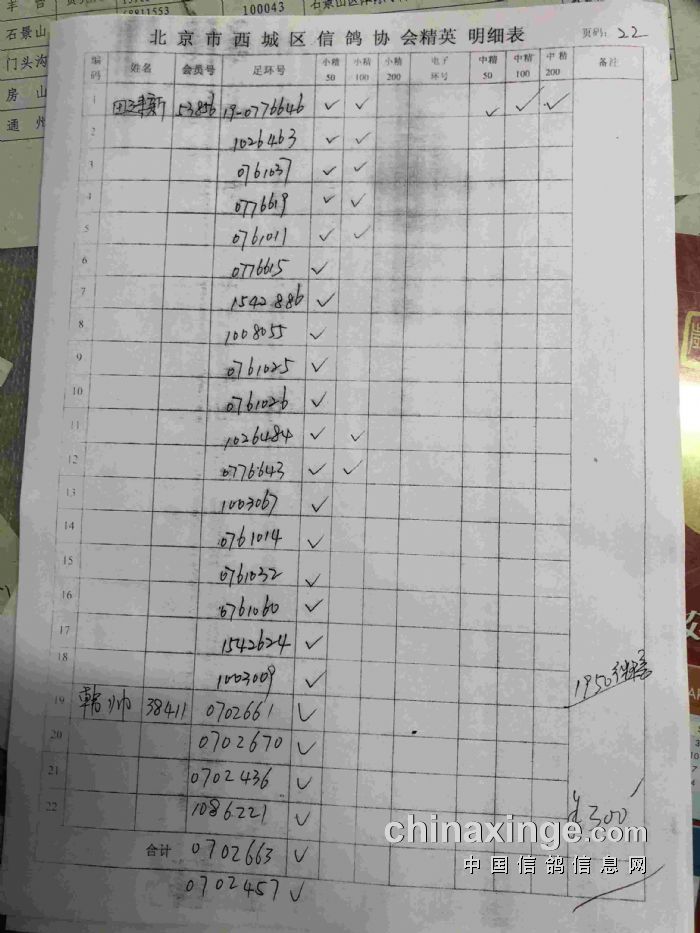 100043
68811553
石景山
门头沟
房 山
通 州
北京市西城区信鸽协会精英 明细表
页码: 22
编码 姓名 会员号 足环号 小精50 小精100 小精200 电子环号 中精50 中精100 中精200 备注
1 53856 19-0776646 ✓ ✓ ✓ ✓ ✓
2 1026463 ✓ ✓
3 0761037 ✓ ✓
4 0776619 ✓ ✓
5 0761011 ✓ ✓
6 0776615 ✓
7 1542886 ✓
8 1008055 ✓
9 0761025 ✓
10 0761026 ✓
11 1026484 ✓ ✓
12 0776643 ✓ ✓
13 1003067 ✓
14 0761014 ✓
15 0761032 ✓
16 0761060 ✓
17 1542624 ✓
18 1003009 ✓ 1950
19 韩帅 38411 0702661 ✓
20 0702670 ✓
21 0702436 ✓
22 1086221 ✓ 300
合计 0702663 ✓
0702457 ✓
chinaxinge.com
中国信鸽信息网